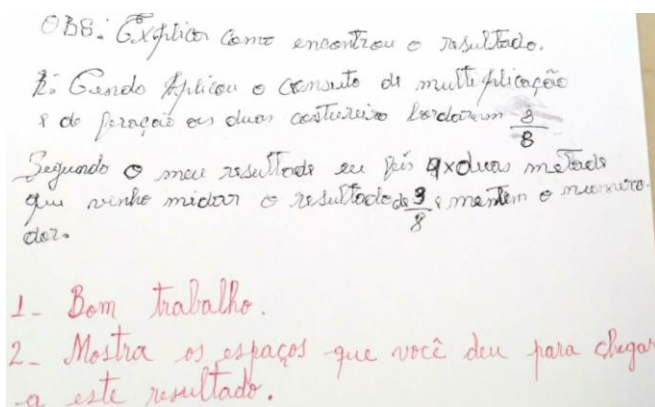 OBS: Explicar como encontrou o resultado.
R: Sendo Aplicou o conseito de multiplicação
e de feração as duas costureiro bordaram 3/8
Segundo o meu resultado eu fis 4x duas metade
que vinho midar o resultado de 3/8 e mantem o numero
dor.
1- Bom trabalho.
2- Mostra os espaços que você deu para chegar
a este resultado.